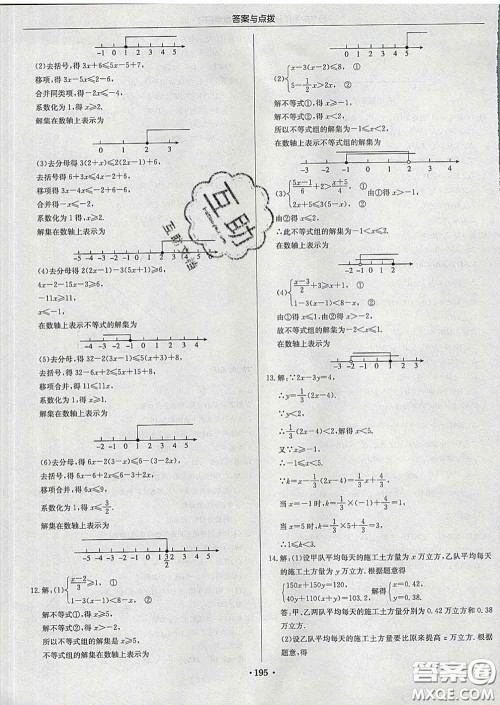 答案与点拨
-1 0 1 2 3 4 5
(2)去括号,得 3x+6≤5x-5+7,
移项,得 3x-5x≤2-6,
合并同类项,得-2x≤-4,
系数化为 1,得 x≥2.
解集在数轴上表示为
-2 -1 0 1 2 3 4
(3)去分母得 3(2+x)≤2(2x-1)+6,
去括号得 6+3x≤4x-2+6,
移项得 3x-4x≤-2,
合并得-x≤-2,
系数化为 1,得 x≥2.
解集在数轴上表示为
-4 -3 -2 -1 0 1 2 3 4 5
(4)去分母得 2(2x-1)-3(5x+1)≤6,
4x-2-15x-3≤6,
-11x≤11,
x≥-1.
在数轴上表示不等式的解集为
-4 -3 -2 -1 0 1 2 3 4
(5)去分母,得 32-2(3x-1)≤5(x+3)+8,
去括号,得 32-6x+2≤5x+15+8,
移项合并,得 11≤11x,
系数化为 1,得 x≥1.
在数轴上表示为
-4 -3 -2 -1 0 1 2 3 4 5
(6)去分母,得 6x-2(3-x)≤6-(3-6x),
去括号,得 6x-6+2x≤6-3+6x,
移项合并,得 6x≤9,
系数化为 1,得 x≤3/2.
解集在数轴上表示为
-5 -4 -3 -2 -1 0 1 3/2 2 3 4 5
12.解:(1){(x-2)/3≥1, ①
1-3(x-1)<8-x, ②
解不等式①,得 x≥5,
解不等式②,得 x>-2,
所以不等式组的解集是 x≥5.
不等式组的解集在数轴上表示为
-1 0 1 2 3 4 5
(2){x-3(x-2)≤8, ①
5-1/2x>2x, ②
解不等式①,得 x≥-1,
解不等式②,得 x<2,
所以不等式组的解集为-1≤x<2.
在数轴上表示不等式组的解集为
-4 -3 -2 -1 0 1 2 3 4
(3){(5x-1)/6+2>(x+5)/4, ①
2x+5≤3(5-x), ②
由①得 x>-1,
由②得 x≤2,
∴此不等式组的解集为-1<x≤2.
在数轴上表示为
-3 -2 -1 0 1 2 3 4
(4){(x-3)/2+3≥x+1, ①
1-3(x-1)<8-x, ②
由①得 x≤1,由②得 x>-2.
故不等式组的解集为-2<x≤1.
在数轴上表示为
-5 -4 -3 -2 -1 0 1 2 3 4
13.解:∵2x-3y=4,
∴y=1/3(2x-4).
∵y<2,
∴1/3(2x-4)<2,解得 x<5.
又∵x>-1,
∴-1<x<5.
∵k=x-1/3(2x-4)=1/3x+4/3,
当 x=-1 时,k=1/3×(-1)+4/3=1,
当 x=5 时,k=1/3×5+4/3=3,
∴1<k<3.
14.解:(1)设甲队平均每天的施工土方量为 x 万立方,乙队平均每天
的施工土方量为 y 万立方.根据题意得
{150x+150y=120,
40y+110(x+y)=103.2, 解得{x=0.42,
y=0.38.
答:甲、乙两队平均每天的施工土方量分别为 0.42 万立方和 0.38
万立方.
(2)设乙队平均每天的施工土方量要比原来提高 z 万立方.根据
题意,得
· 195 ·
互助
互助文档
答案圈
MXQE.COM